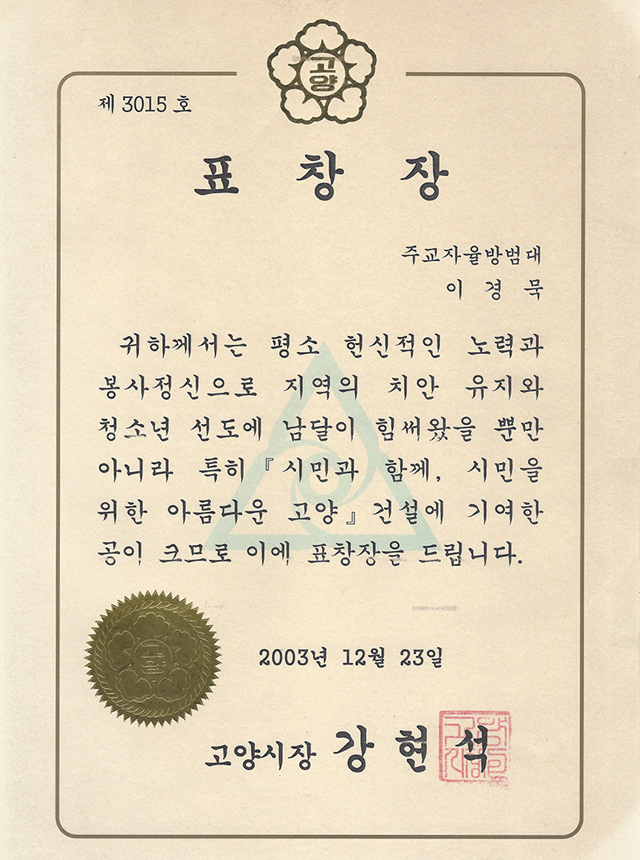 고양
제 3015 호
표 창 장
주교자율방범대
이 경 묵
귀하께서는 평소 헌신적인 노력과
봉사정신으로 지역의 치안 유지와
청소년 선도에 남달이 힘써왔을 뿐만
아니라 특히『시민과 함께, 시민을
위한 아름다운 고양』건설에 기여한
공이 크므로 이에 표창장을 드립니다.
2003년 12월 23일
고양시장 강 현 석